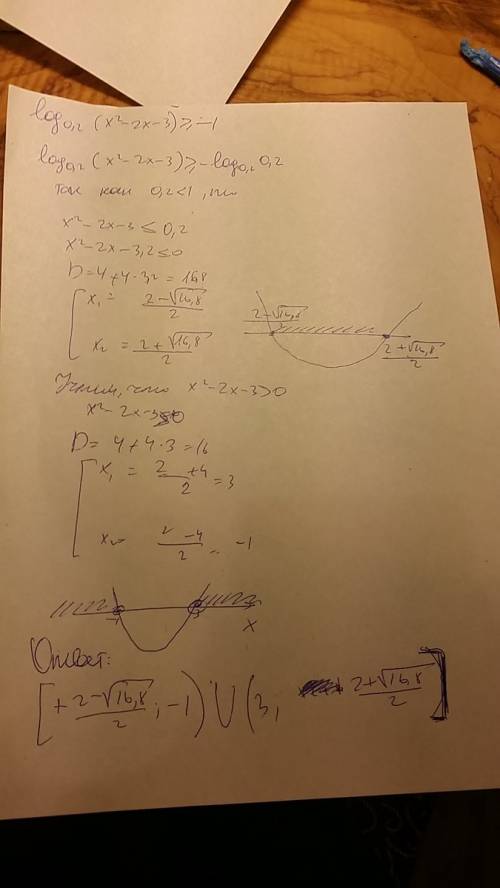 log₀,₂ (x²-2x-3) ≥ -1
log₀,₂ (x²-2x-3) ≥ -log₀,₂ 0,2
так как 0,2<1, то
x²-2x-3 ≤ 0,2
x²-2x-3,2≤0
D=4+4·3,2 = 16,8
x₁ = (2-√16,8)/2
x₂ = (2+√16,8)/2
(2-√16,8)/2
(2+√16,8)/2
Учтём, что x²-2x-3>0
x²-2x-3 0
D= 4+4·3=16
x₁ = (2+4)/2 = 3
x₂ = (2-4)/2 = -1
-1 3
x
Ответ:
[+(2-√16,8)/2; -1) ∪ (3, (2+√16,8)/2]